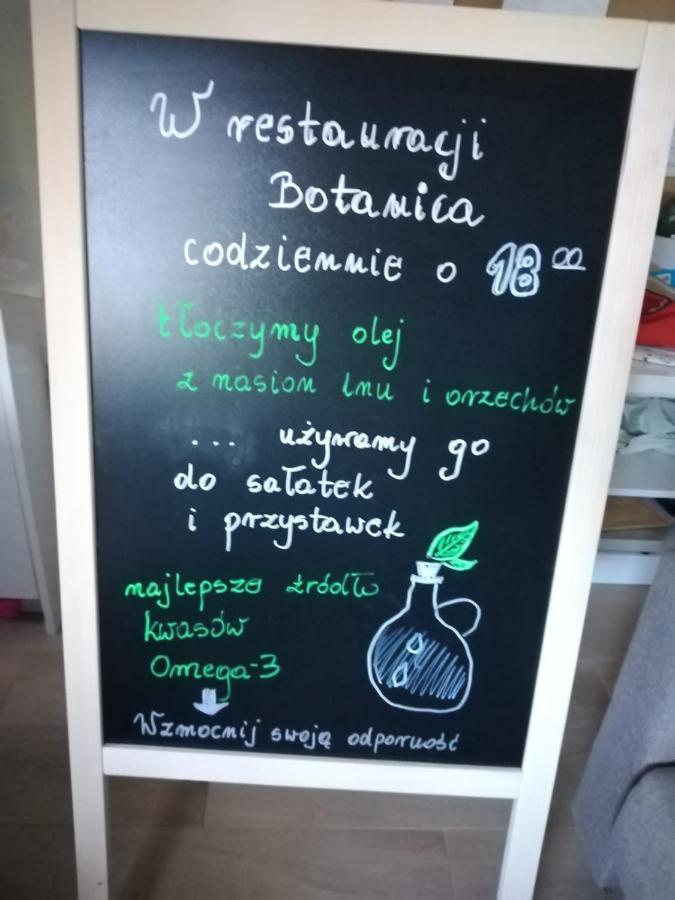 W restauracji
Botanica
codziennie o 18⁰⁰
tłoczymy olej
z nasion lnu i orzechów
... używamy go
do sałatek
i przystawek
najlepsze źródło
kwasów
Omega-3
Wzmocnij swoją odporność